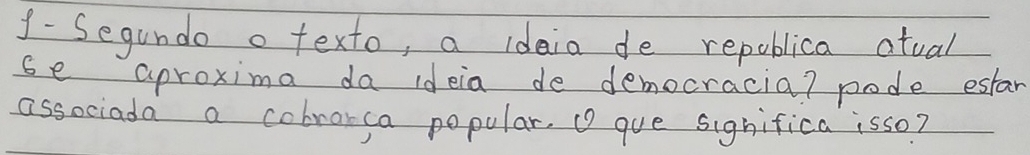 1- Segundo o texto, a idaia de republica atual
se aproxima da ideia de democracia? pode estar
associada a cobrança popular. O que significa isso?